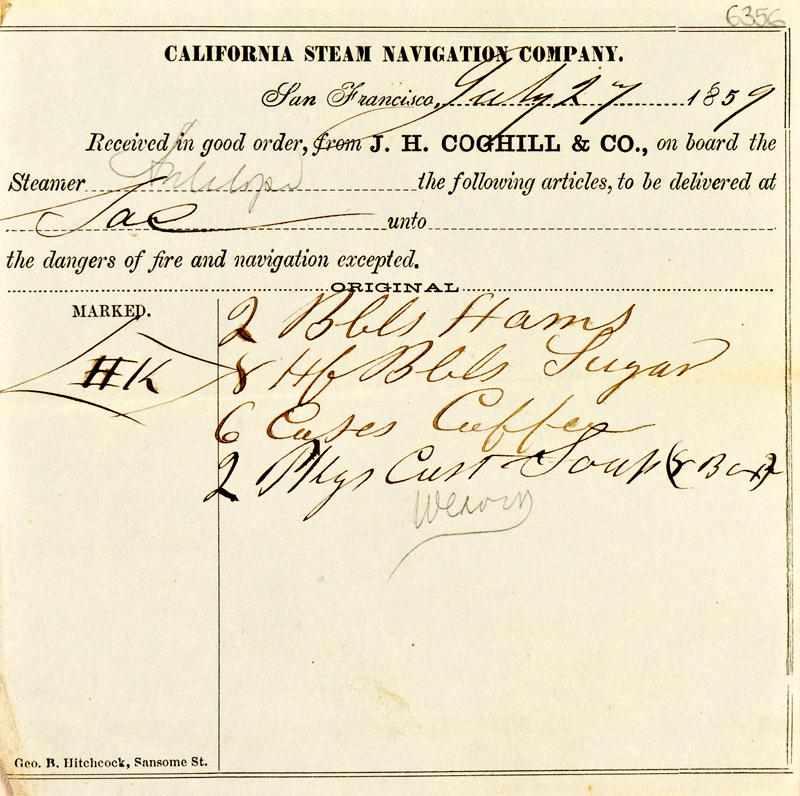 6356
CALIFORNIA STEAM NAVIGATION COMPANY.
San Francisco, July 27 1859
Received in good order, from J. H. COGHILL & CO., on board the
Steamer Antelope the following articles, to be delivered at
Sac unto
the dangers of fire and navigation excepted.
ORIGINAL
MARKED.
2 Bbls Hams
HK 8 Hf Bbls Sugar
6 Cases Coffee
2 Pkgs Cast Soap
Geo. B. Hitchcock, Sansome St.